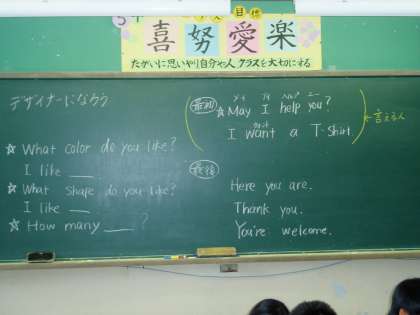 クラス目標
喜努愛楽
たがいに思いやり自分や人クラスを大切にする
デザイナーになろう
☆ What color do you like?
I like ___
☆ What shape do you like?
I like ___
☆ How many ___?
最初
メイ アイ ヘルプ ユー
☆ May I help you?
ウォント
I want a T-Shirt
←言える人
最後
Here you are.
Thank you.
You're welcome.